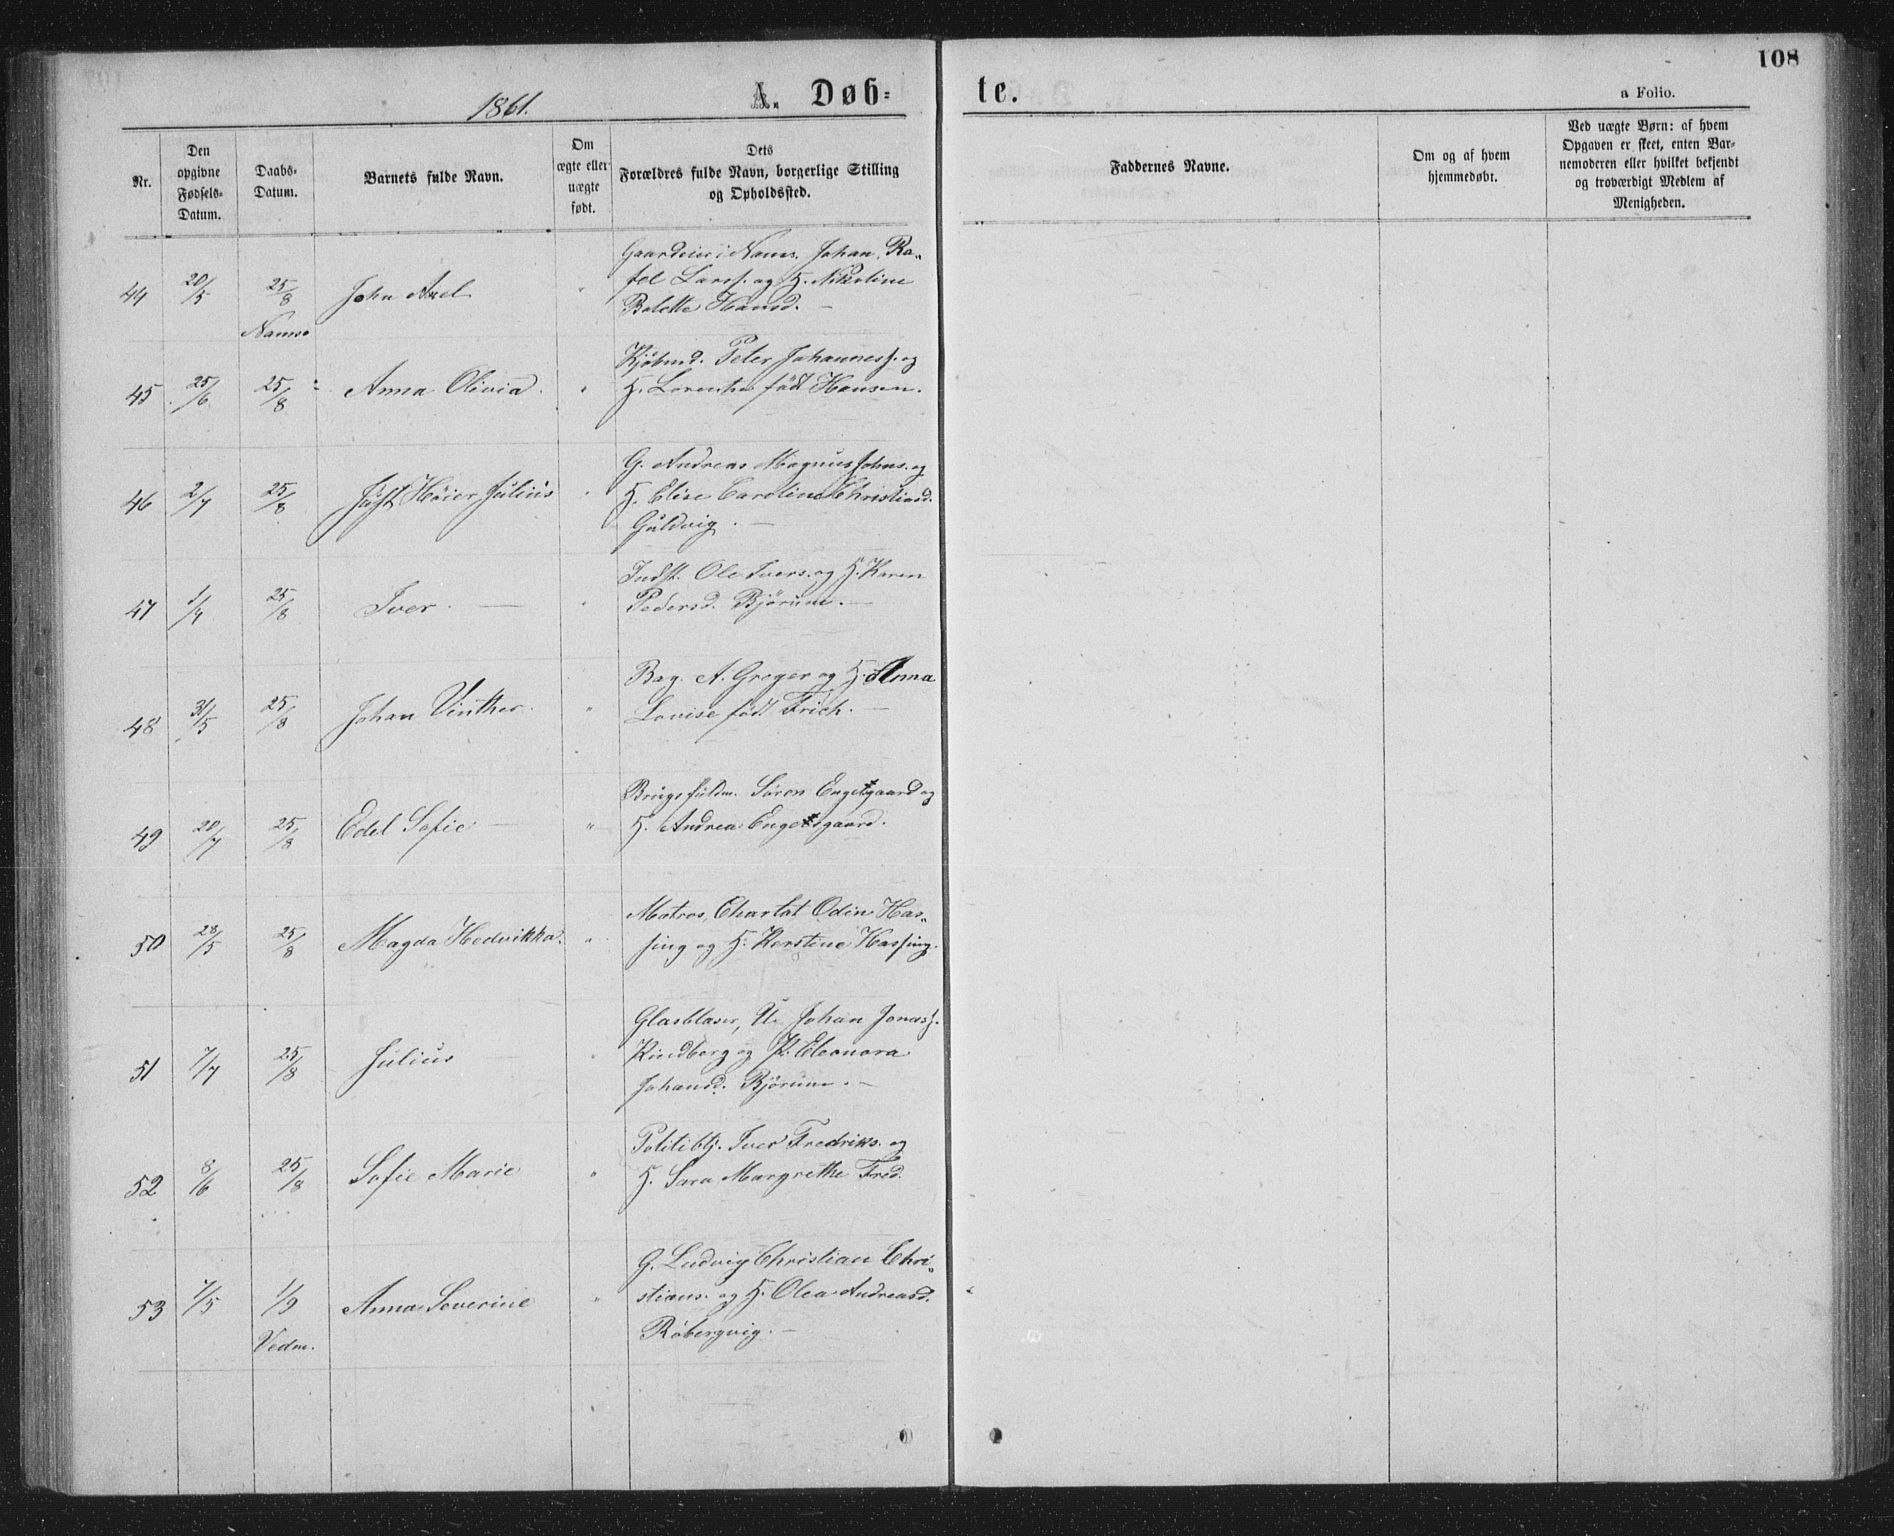 108
1861.
A. Døb-
te.
a Folio.
Nr.
Den
opgivne
Fødsels-
Datum.
Daabs-
Datum.
Barnets fulde Navn.
Om
ægte eller
uægte
født.
Dets
Forældres fulde Navn, borgerlige Stilling
og Opholdssted.
Faddernes Navne.
Om og af hvem
hjemmedøbt.
Ved uægte Børn: af hvem
Opgaven er skeet, enten Bar-
nemoderen eller hvilket bekjendt
og troværdigt Medlem af
Menigheden.
44 20/5 25/8 John Axel "
Namsos
Gaardeier i Nams. Johan Ra-
fel Larss. og H. Nikoline
Bolette Hansd. —
45 25/6 25/8 Anna Olivia. "
Kjøbmd. Peter Johanness. og
H. Lorentze født Hansen.
46 2/7 25/8 Just Høier Julius "
G. Andreas Magnus Johns. og
H. Elise Caroline Christiansd.
Guldvig. —
47 1/7 25/8 Iver. — "
Indst. Ole Ivers. og H. Karen
Pedersd. Bjørum. —
48 31/5 25/8 Johan Vinther. "
Bag. A. Greger og H. Anna
Lovise født Frich. —
49 20/7 25/8 Edel Sofie — "
Brugsfuldm. Sören Engelsgaard og
H. Andrea Engelsgaard.
50 28/5 25/8 Magda Hedvikka. "
Matros, Odin Has-
sing og H. Kerstine Hassing.
51 7/7 25/8 Julius "
Glasblaser, Johan Jonass.
Rindberg og Eleonora
Johansd. Bjørum. —
52 8/6 25/8 Sofie Marie "
Politibtj. Iver Fredriks. og
H. Sara Margrethe Fred.
53 7/5 1/9 Anna Severine "
Vedm.
G. Ludvig Christian Chri-
stians. og H. Olea Andreasd.
Röbergvig. —